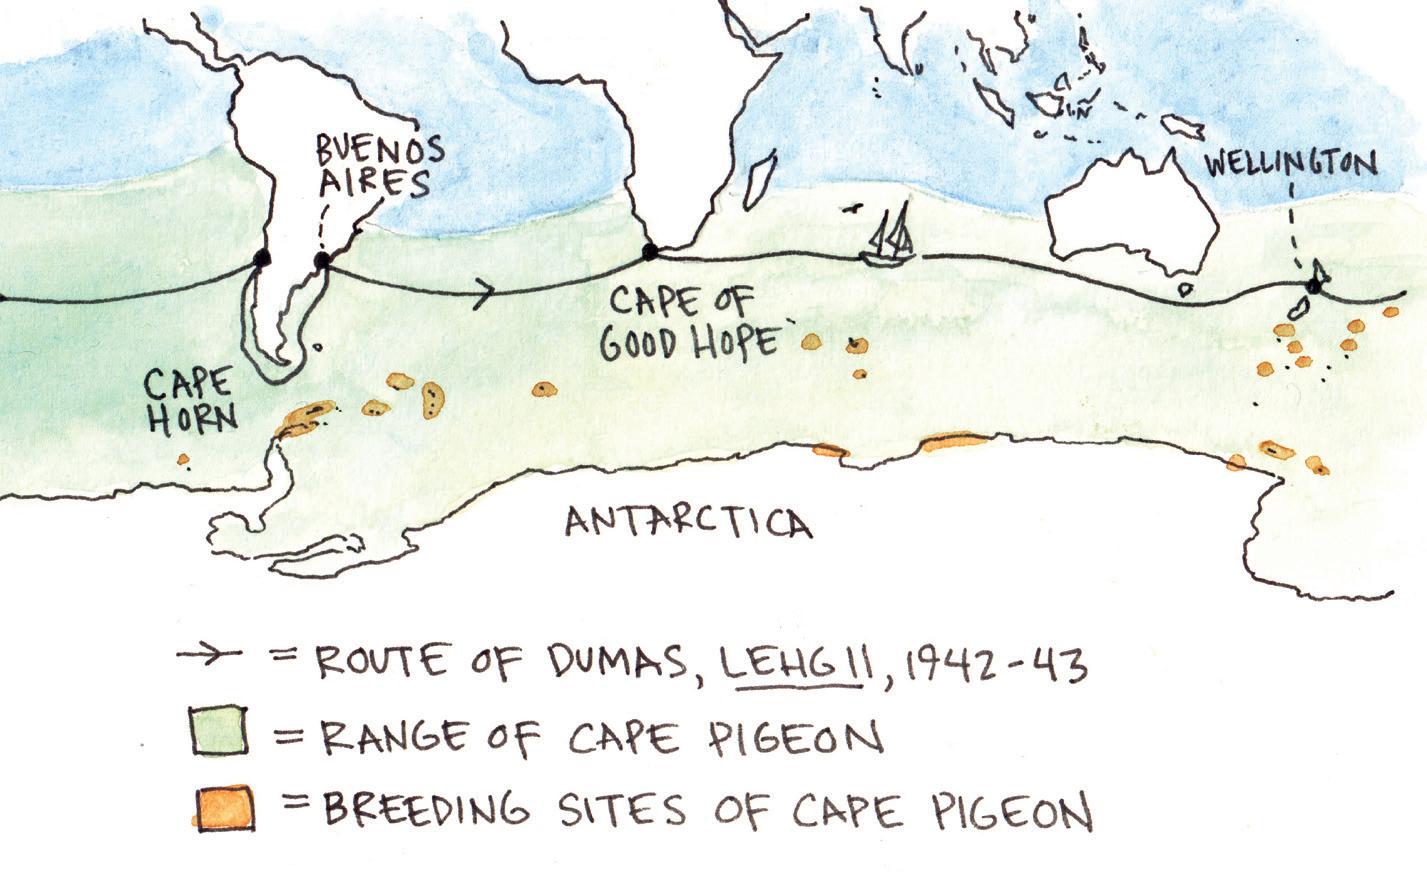 BUENOS
AIRES
WELLINGTON
CAPE OF
GOOD HOPE
CAPE
HORN
ANTARCTICA
= ROUTE OF DUMAS, LEHG II, 1942-43
= RANGE OF CAPE PIGEON
= BREEDING SITES OF CAPE PIGEON